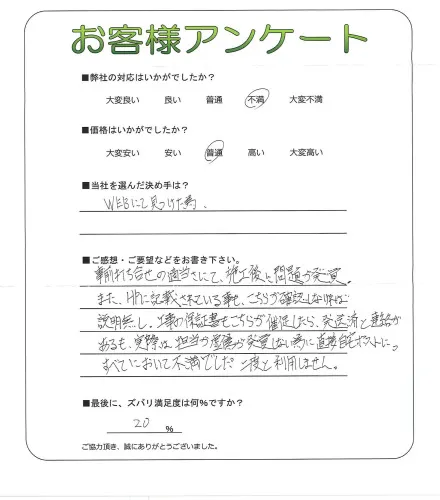 お客様アンケート
■弊社の対応はいかがでしたか?
大変良い 良い 普通 不満 大変不満
■価格はいかがでしたか?
大変安い 安い 普通 高い 大変高い
■当社を選んだ決め手は?
WEBにて見つけた為.
■ご感想・ご要望などをお書き下さい。
事前打ち合せの適当さにて、施工後に問題が発覚。
また、HPに記載されている事も、こちらが確認しなければ
説明無し。工事の保証書もこちらが催促したら、発送済と連絡が
あるも、実際は担当の が発覚しない為に直接自宅ポストに。
すべてにおいて不満でした。二度と利用しません。
■最後に、ズバリ満足度は何%ですか?
20 %
ご協力頂き、誠にありがとうございました。